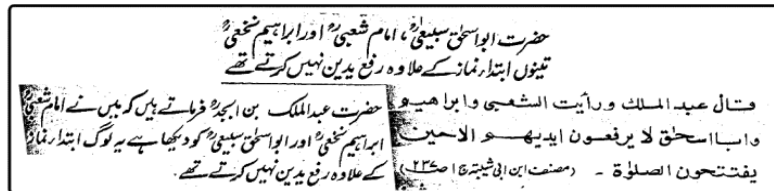 حضرت ابواسحٰق سبیعیؒ، امام شعبیؒ اور ابراہیم نخعیؒ
تینوں ابتدار نماز کے علاوہ رفع یدین نہیں کرتے تھے
قال عبد الملك ورأيت الشعبى وابراهيم
وابا اسحٰق لا يرفعون ايديهم الاحين
يفتتحون الصلوٰة ـ (مصنف ابن ابی شیبۃ ج۱ ص۲۳۷)
حضرت عبدالملک بن ابجرؒ فرماتے ہیں کہ میں نے امام شعبیؒ
ابراہیم نخعیؒ اور ابواسحٰق سبیعیؒ کو دیکھا ہے یہ لوگ ابتدار نماز
کے علاوہ رفع یدین نہیں کرتے تھے۔